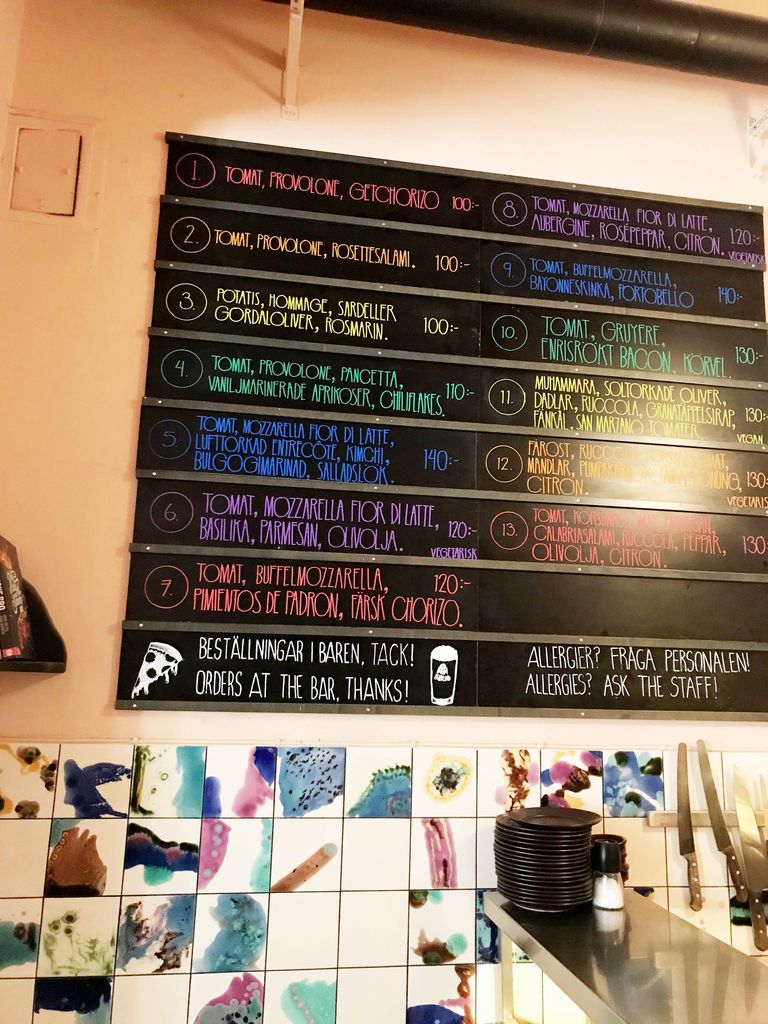 1. TOMAT, PROVOLONE, GETCHORIZO 100:-
2. TOMAT, PROVOLONE, ROSETTESALAMI. 100:-
3. POTATIS, HOMMAGE, SARDELLER
GORDALOLIVER, ROSMARIN. 100:-
4. TOMAT, PROVOLONE, PANCETTA,
VANILJMARINERADE APRIKOSER, CHILIFLAKES. 110:-
5. TOMAT, MOZZARELLA FIOR DI LATTE,
LUFTTORKAD ENTRECÔTE, KIMCHI,
BULGOGIMARINAD, SALLADSLÖK. 140:-
6. TOMAT, MOZZARELLA FIOR DI LATTE,
BASILIKA, PARMESAN, OLIVOLJA. 120:-
VEGETARISK
7. TOMAT, BUFFELMOZZARELLA,
PIMIENTOS DE PADRON, FÄRSK CHORIZO. 120:-
8. TOMAT, MOZZARELLA FIOR DI LATTE,
AUBERGINE, ROSÉPEPPAR, CITRON. 120:-
VEGETARISK
9. TOMAT, BUFFELMOZZARELLA,
BAYONNESKINKA, PORTOBELLO 140:-
10. TOMAT, GRUYERE,
ENRISRÖKT BACON, KÖRVEL. 130:-
11. MUHAMMARA, SOLTORKADE OLIVER,
DADLAR, RUCCOLA, GRANATÄPPELSIRAP,
FÄNKÅL, SAN MARZANO TOMATER. 130:-
VEGAN
12. FÅROST, RUCCOLA,
MANDLAR,
CITRON. 130:-
VEGETARISK
13. TOMAT, PARMESAN,
CALABRIASALAMI, RUCCOLA, PEPPAR,
OLIVOLJA, CITRON. 130:-
BESTÄLLNINGAR I BAREN, TACK!
ORDERS AT THE BAR, THANKS!
ALLERGIER? FRÅGA PERSONALEN!
ALLERGIES? ASK THE STAFF!